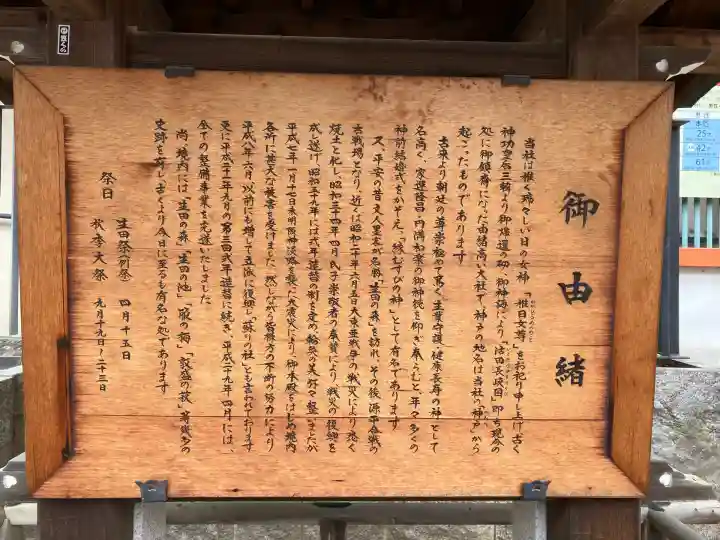 御由緒
当社は稚く瑞々しい日の女神「稚日女尊」をお祀り申し上げ古く
わかひるめのみこと
神功皇后三韓より御帰還の砌、御神誨により、活田長峡国即ち現今の
処に御鎮斎になった由緒高い大社で、神戸の地名は当社の神戸から
起こったものであります
古来より朝廷の尊崇極めて篤く、生業守護・健康長寿の神として
名高く、家運隆昌・円満和楽の御神徳を仰ぎ奉らむと、年々多くの
神前結婚式をかぞえ、「縁むすびの神」として有名であります
又、平安の昔文人墨客が名勝「生田の森」を訪れ、その後源平合戦の
古戦場となり、近くは昭和二十年六月五日大東亜戦争の戦災により悉く
焼土と化し、昭和三十四年四月氏子崇敬者の奉賛により、戦災の復興を
成し遂げ、昭和五十九年には式年造替の制を定め輪奐の美好々整いましたが
平成七年一月十七日未明阪神淡路を襲った大震災により、御本殿をはじめ境内
各所に甚大な被害を受けました 然しながら皆様方の不断の努力により
平成八年六月以前にも増して立派に復興し「蘇りの社」とも言われております
更に平成二十一年九月の第三回式年造替に続き、平成二十九年四月には、
全ての整備事業を完遂いたしました
尚、境内には「生田の森」「生田の池」「箙の梅」「敦盛の萩」等幾多の
史跡を有し、古くより今日に至るも有名な処であります
祭日 生田祭(例祭) 四月十五日
秋季大祭 九月十九日~二十三日
25
42
61